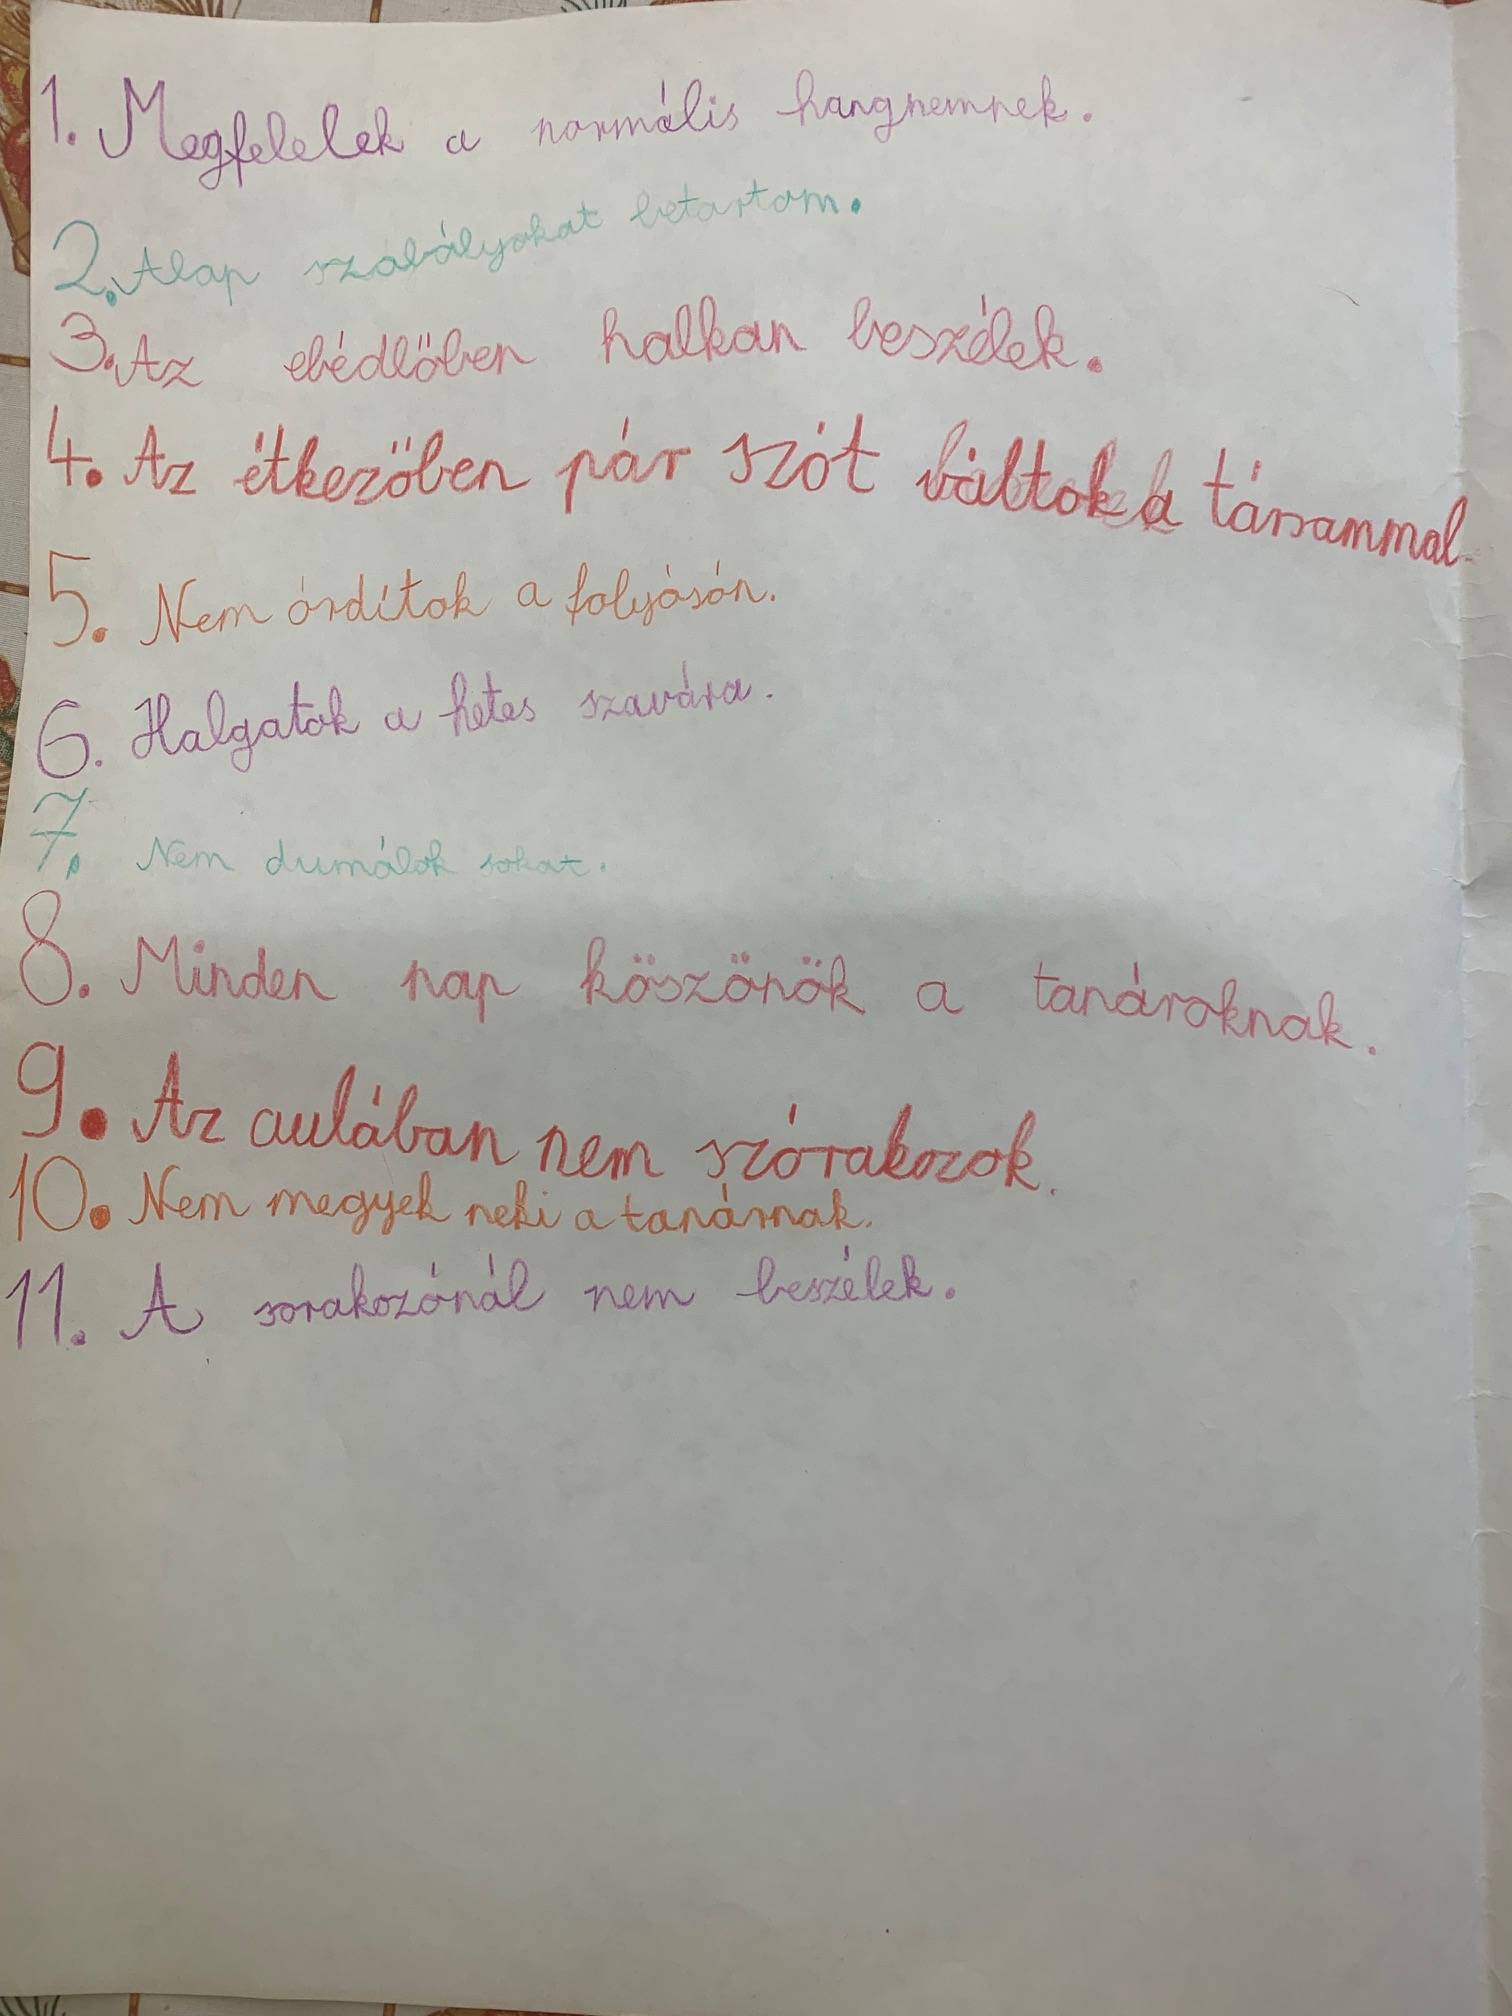 1. Megfelelek a normális hangnemnek.
2. Alap szabályokat betartom.
3. Az ebédlőben halkan beszélek.
4. Az étkezőben pár szót váltok a társammal.
5. Nem órdítok a folyósón.
6. Halgatok a hetes szavára.
7. Nem dumálok sokat.
8. Minden nap köszönök a tanároknak.
9. Az aulában nem szórakozok.
10. Nem megyek neki a tanárnak.
11. A sorakozónál nem beszélek.